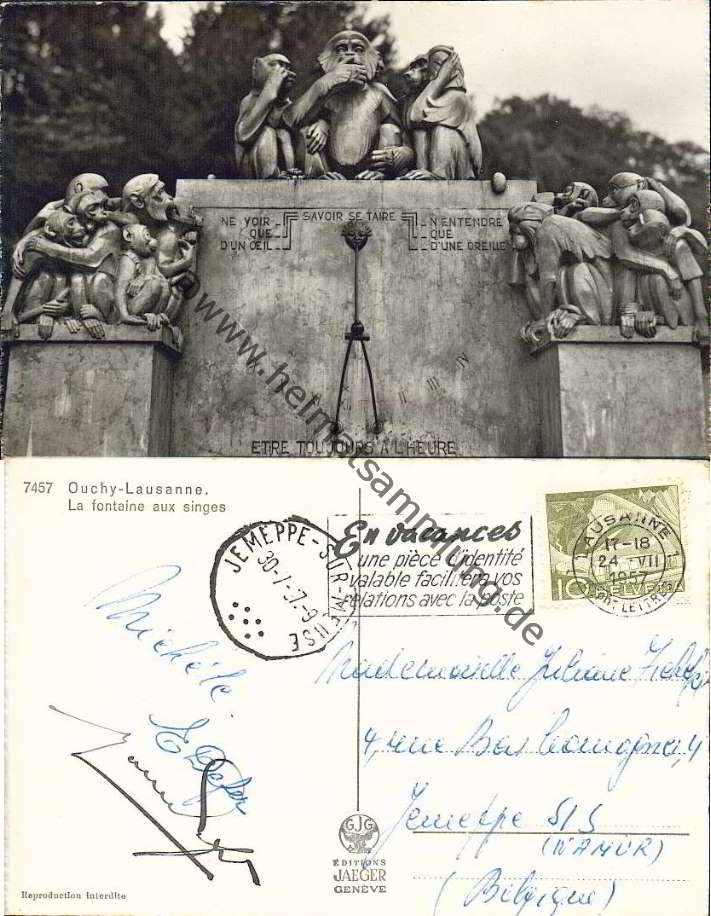 NE VOIR
QUE
D'UN OEIL
SAVOIR SE TAIRE
N'ENTENDRE
QUE
D'UNE OREILLE
III IV
ETRE TOUJOURS A L'HEURE
www.heimatsammlung.de
7457 Ouchy-Lausanne.
La fontaine aux singes
JEMEPPE-SUR-
30-7-7-9
En vacances
une pièce d'identité
valable facilitera vos
relations avec la poste
LAUSANNE 1
17-18
24. VII
1957
10 HELVETIA
Michèle.
Mademoiselle Juliane
4, rue Bas
Jemeppe S/S
(NAMUR)
(Belgique)
GJG
ÉDITIONS
JAEGER
GENÈVE
Reproduction interdite